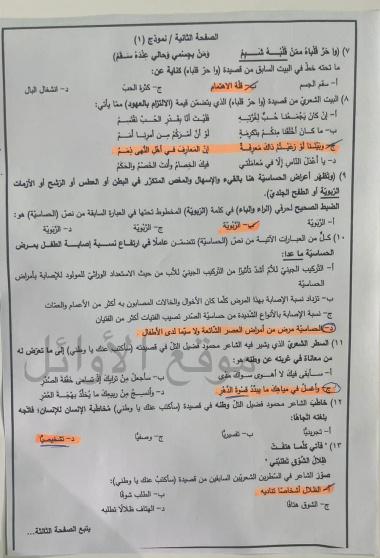 الصفحة الثانية / نموذج (١)
٧) (وا حرّ قلباه ممّن قلبه شبم ومن بجسمي وحالي عنده سقم)
ما تحته خطّ في البيت السابق من قصيدة (وا حرّ قلباه) كناية عن:
أ- سقم الجسم ب- قلة الاهتمام ج- كثرة الحب د- انشغال البال
٨) البيت الشعريّ من قصيدة (وا حرّ قلباه) الذي يتضمّن قيمة (الالتزام بالعهود) ممّا يأتي:
أ- إن كان يجمعنا حبّ لغرّته فليت أنّا بقدر الحبّ نقتسم
ب- ما كان أخلقنا منكم بتكرمة لو أنّ أمركم من أمرنا أمم
ج- وبيننا لو رعيتم ذاك معرفة إنّ المعارف في أهل النّهى ذمم
د- يا أعدل النّاس إلّا في معاملتي فيك الخصام وأنت الخصم والحكم
٩) (وتظهر أعراض الحساسيّة هنا بالقيء والإسهال والمغص المتكرّر في البطن أو العطس أو الرّشح أو الأزمات
الرّبويّة أو الطفح الجلديّ).
الضبط الصحيح لحرفي (الراء والباء) في كلمة (الربويّة) المخطوط تحتها في العبارة السابقة من نصّ (الحساسيّة) هو:
أ- الربويّة ب- الربويّة ج- الربويّة د- الربويّة
١٠) كلّ من العبارات الآتية من نصّ (الحساسيّة) تتضمّن عاملًا في ارتفاع نسبة إصابة الطفل بمرض
الحساسيّة ما عدا:
أ- التركيب الجينيّ للأمّ أشدّ تأثيرًا من التركيب الجينيّ للأب من حيث الاستعداد الوراثيّ للمولود للإصابة بأمراض
الحساسيّة
ب- تزداد نسبة الإصابة بهذا المرض كلّما كان الأخوال والخالات المصابون به أكثر من الأعمام والعمّات
ج- نسبة الإصابة بالأنواع الشديدة من حساسيّة الصدر تصيب الفتيات أكثر من الفتيان
د- الحساسيّة مرض من أمراض العصر الشّائعة ولا سيّما لدى الأطفال
١١) السطر الشعريّ الذي يشير فيه الشاعر محمود فضيل التلّ في قصيدته (سأكتب عنك يا وطني) إلى ما تعرّض له
من معاناة في غربته عن وطنه هو:
أ- سأبقى فيك لا أهوى سواك هوى ب- سأجعل من ترابك إذ تسامى خفقة الصّدر
ج- وأغسل في مياهك ما يبدّد قسوة الدّهر د- وأنسج من ربيعك ما يخلّد بهجة العمر
١٢) خاطب الشاعر محمود فضيل التلّ وطنه في قصيدة (سأكتب عنك يا وطني) مخاطبة الإنسان للإنسان؛ فاتّجه
بلغته اتّجاهًا:
أ- تجريبيًّا ب- تفسيريًّا ج- وصفيًّا د- تشخيصيًّا
١٣) "فأنّي كلّما هتفت
ظلال الشّوق تطلبني"
صوّر الشاعر في السّطرين الشعريين السابقين من قصيدة (سأكتب عنك يا وطني):
أ- الظلال أشخاصًا تناديه ب- الطلب شوقًا
ج- الشوق هتافًا د- الهتاف ظلالًا تطلبه
يتبع الصفحة الثالثة...
موقع الأوائل